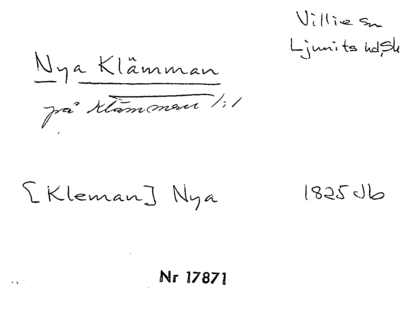 Villie sn
Ljunits hd, Sk
Nya Klämman
på klämman 1:1
[Kleman] Nya 1825 Jb
Nr 17871